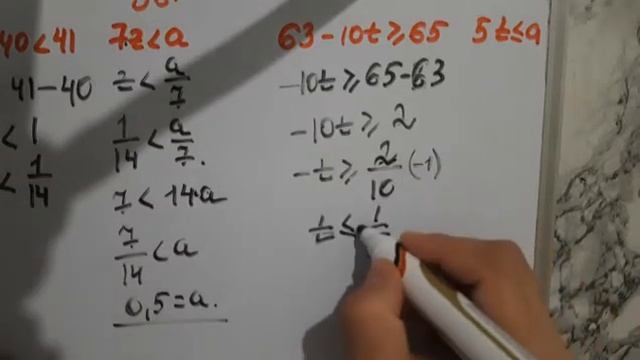 40<41 7z<a 63-10t≥65 5t≤a
41-40 z<a/7 -10t≥65-63
<1 1/14<a/7. -10t≥2
<1/14 7<14a -t≥2/10 (-1)
7/14<a t≤
0,5=a.